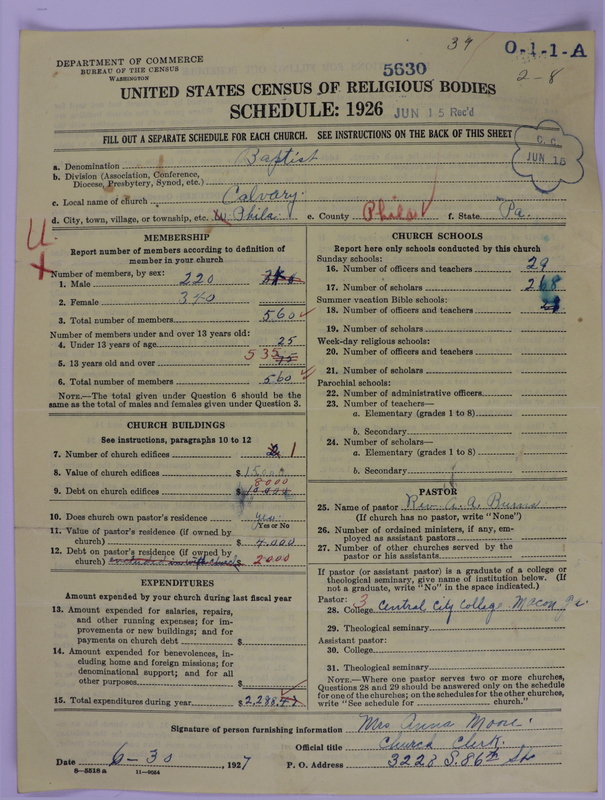 34 O-1-1-A
DEPARTMENT OF COMMERCE
BUREAU OF THE CENSUS
WASHINGTON
5630
2-8
UNITED STATES CENSUS OF RELIGIOUS BODIES
SCHEDULE: 1926 JUN 15 Rec'd
FILL OUT A SEPARATE SCHEDULE FOR EACH CHURCH. SEE INSTRUCTIONS ON THE BACK OF THIS SHEET
C. C.
JUN 15
a. Denomination Baptist
b. Division (Association, Conference, Diocese, Presbytery, Synod, etc.)
c. Local name of church Calvary.
d. City, town, village, or township, etc. W. Phila. e. County Phila f. State Pa.
U.
MEMBERSHIP
Report number of members according to definition of
member in your church
Number of members, by sex:
1. Male 220
2. Female 340
3. Total number of members 560
Number of members under and over 13 years old:
4. Under 13 years of age 25
5. 13 years old and over 535
6. Total number of members 560
NOTE.—The total given under Question 6 should be the
same as the total of males and females given under Question 3.
CHURCH BUILDINGS
See instructions, paragraphs 10 to 12
7. Number of church edifices 1
8. Value of church edifices $15000
9. Debt on church edifices $ 8000
10. Does church own pastor's residence yes
Yes or No
11. Value of pastor's residence (if owned by
church) $ 7,000
12. Debt on pastor's residence (if owned by
church) $ 2000
EXPENDITURES
Amount expended by your church during last fiscal year
13. Amount expended for salaries, repairs,
and other running expenses; for im-
provements or new buildings; and for
payments on church debt $
14. Amount expended for benevolences, in-
cluding home and foreign missions; for
denominational support; and for all
other purposes $
15. Total expenditures during year $2,288.77
CHURCH SCHOOLS
Report here only schools conducted by this church
Sunday schools:
16. Number of officers and teachers 29
17. Number of scholars 268
Summer vacation Bible schools:
18. Number of officers and teachers
19. Number of scholars
Week-day religious schools:
20. Number of officers and teachers
21. Number of scholars
Parochial schools:
22. Number of administrative officers
23. Number of teachers—
a. Elementary (grades 1 to 8)
b. Secondary
24. Number of scholars—
a. Elementary (grades 1 to 8)
b. Secondary
PASTOR
25. Name of pastor Rev. A. A. Burns
(If church has no pastor, write "None")
26. Number of ordained ministers, if any, em-
ployed as assistant pastors
27. Number of other churches served by the
pastor or his assistants
If pastor (or assistant pastor) is a graduate of a college or
theological seminary, give name of institution below. (If
not a graduate, write "No" in the space indicated.)
Pastor: 3
28. College Central City College Macon Ga.
29. Theological seminary
Assistant pastor:
30. College
31. Theological seminary
NOTE.—Where one pastor serves two or more churches,
Questions 28 and 29 should be answered only on the schedule
for one of the churches; on the schedules for the other churches,
write "See schedule for church."
Signature of person furnishing information Mrs Anna Moore.
Official title Church Clerk.
Date 6-30, 1927 P. O. Address 3228 S. 86th St
8—5516 a 11—9054